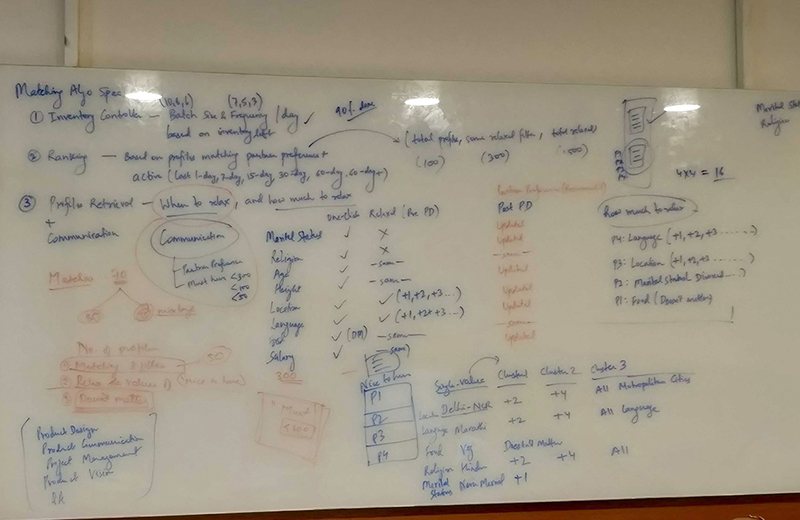 Matching Algo Spec
(10,6,6) (7,5,3)
① Inventory Controller - Batch Size & Frequency / day ✓ 90% done
based on inventory left
② Ranking - Based on profiles matching partner preference +
active (last 1-day, 7-day, 15-day, 30-day, 60-day, 60-day+)
(total profiles, some relaxed filter, total relaxed)
(100) (300) (500)
4x4 = 16
Marital Sta
Religion
③ Profiles Retrieval - When to relax, and how much to relax
+
Communication
Communication
Partner Preference
Must have < 300
< 100
< 50
Matches 70
No. of
① Matching
50
② Relax
③ Doesn't matter
300
Must
Product Design
Product Communication
Project Management
Product Vision
QA
one-click Relaxed (Pre PD) Post PD
Marital Status ✓ X Updated
Religion ✓ X Updated
Age ✓ - same - - same -
Height ✓ - same - Updated
Location ✓ ✓ (+1,+2,+3...) Updated
Language ✓ ✓ (+1,+2,+3...) Updated
Diet ✓ (DM) - same - - same -
Salary ✓ - same - Updated
How much to relax
P4: Language (+1,+2,+3 ......)
P3: Location (+1,+2,+3 ......)
P2: Marital Status
P1: Food (Doesn't matter)
Nice to have
P1
P2
P3
P4
Single-value Cluster 1 Cluster 2 Cluster 3
Location Delhi-NCR +2 +4 All Metropolitan Cities
Language Marathi +2 +4 All Language
Food Veg Doesn't Matter
Religion Hindu +2 +4 All
Marital Status Never Married +1